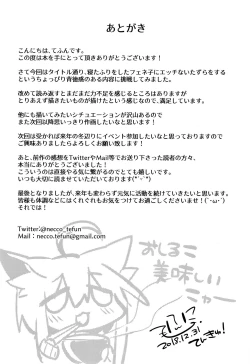 あとがき
こんにちは、てふんです。
この度は本を手にとって頂きありがとうございます！
さて今回はタイトル通り、寝たふりをしたフェネ子にエッチないたずらをする
というちょっぴり背徳感のある内容に挑戦してみました。
改めて読み返すとまだまだ力不足を感じるところはありますが
とりあえず描きたいものが描けたという感じなので、満足しています。
他にも描いてみたいシチュエーションが沢山あるので
また次回以降思いっきり作画したいなと思います！
次回は受かれば来年の冬辺りにイベント参加したいなと思っておりますので
ご興味ありましたらよろしくお願い致します！
あと、前作の感想をTwitterやMail等でお送り下さった読者の方々、
本当にありがとうございました！
こういうのは直接やる気に繋がるのでとても嬉しいです。
いつも大切に読ませていただいております(*´˘`*)
最後となりましたが、来年も変わらず元気に活動を続けていきたいと思います。
皆様も体調などにはくれぐれもお気をつけてお過ごしくださいませ！(｀･ω･´)
それでは！
Twitter:@necco_tefun
Mail：necco.tefun@gmail.com
おしるこ
美味しい
ニャー
てふん
2018.12.31